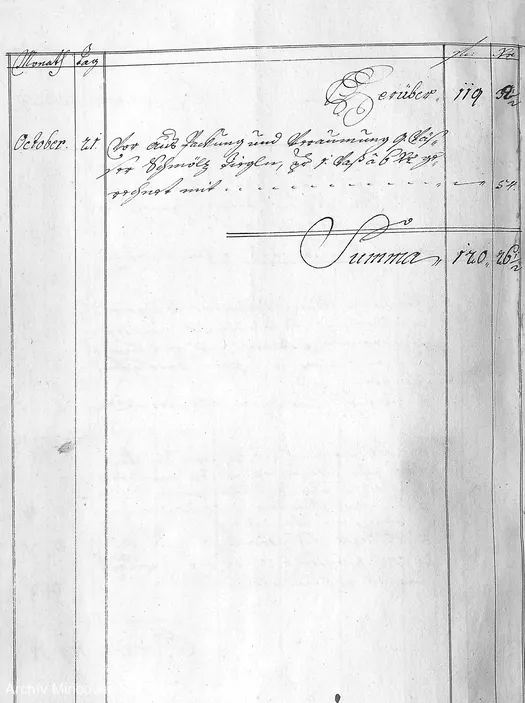 Monath Tag fl. Xr.
Herüber. 119 32½
October. 21. Vor aus Packung und Verraumung 9. Väs-
ser Schmöltz Tiegln, zu 1. Vaß à 6 Xr ge-
rechnet mit - - - - - - - - - - „ — „ 54.
Summa „ 120. 26½
Archiv